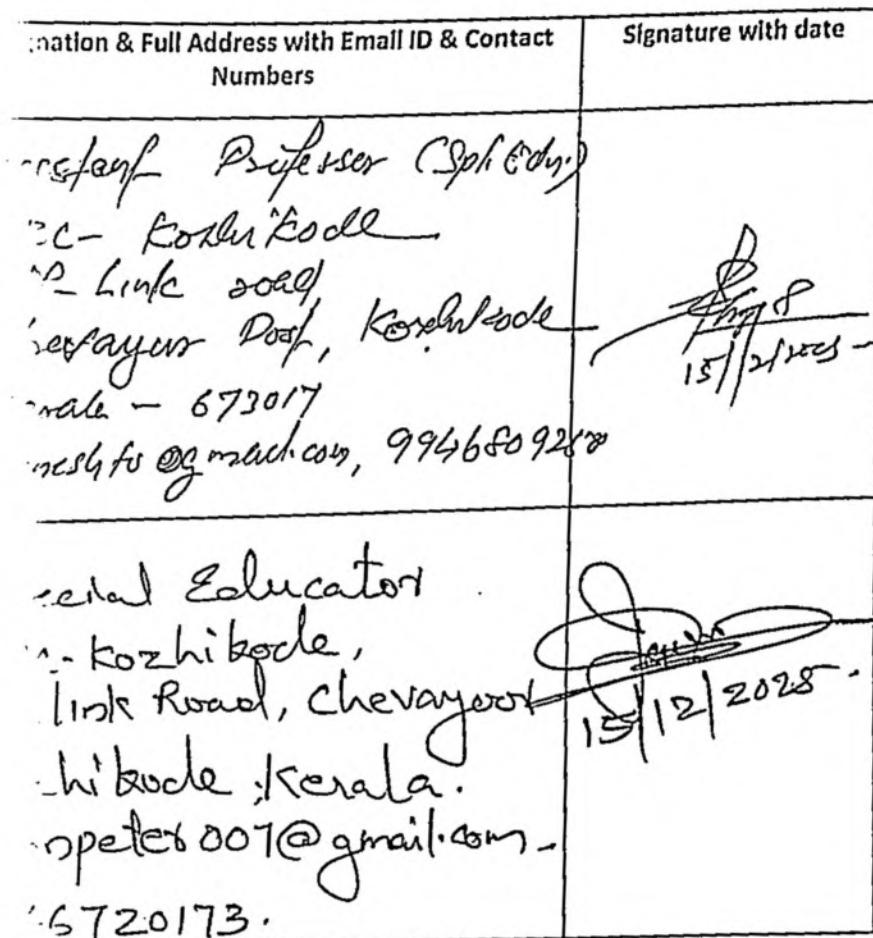 nation & Full Address with Email ID & Contact Numbers
Signature with date
Professor (Spl. Edn.)
Kozhikode
Link road
Post, Kozhikode
- 673017
15/12/2025
Educator
Kozhikode,
link Road, Chevayoor
hikode, Kerala.
npeter007@gmail.com
6720173.
15/12/2025.